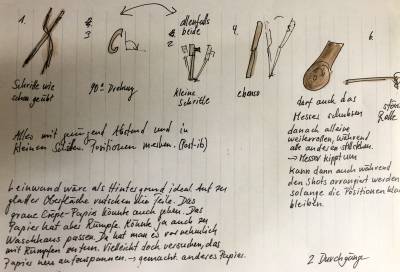 1.
2.
3
allenfalls
beide
2
4.
6.
Schritte wie
schon geübt
90° Drehung
kleine
Schritte
ebenso
darf auch das
Messer schubsen
danach alleine
weiterrollen, während
alle anderen stillstehen.
→ Messer kippt um
Kann dann auch während
den Shots arrangiert werden,
solange die Positionen klar
bleiben.
Rolle
Alles mit genügend Abstand und in
kleinen Positionen machen. (Post-it)
Leinwand wäre als Hintergrund ideal. Auf der
glatten Oberfläche rutschen die Teile. Das
graue Crêpe-Papier könnte auch gehen. Das
Papier hat aber Rümpfe. Könnte ja auch zu
Waschhaus passen. Da hat man es vornehmlich
mit Rümpfen zu tun. Vielleicht doch versuchen, das
Papier neu aufzuspannen → gemacht. anderes Papier.
2 Durchgänge